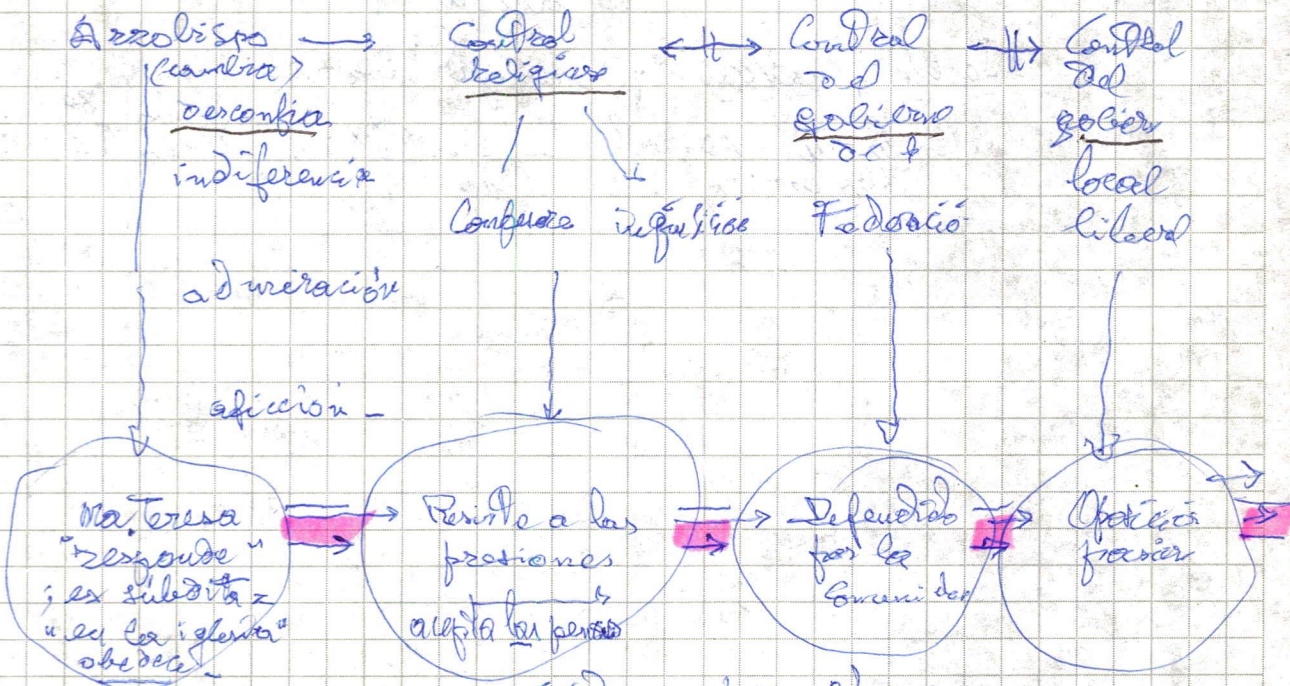 Arzobispo
(cambia)
desconfia
indiferencia
admiración
afición -
Control
religioso
Confesore inquisición
Control
del
gobierno
de l
Federació
Control
del
gobier
local
liberal
Ma. Teresa
"responde"
; es súbdita =
"en la iglesia"
obedece
Resiste a las
presiones
acepta las penas
Defendido
por la
Comunidad
Oposición